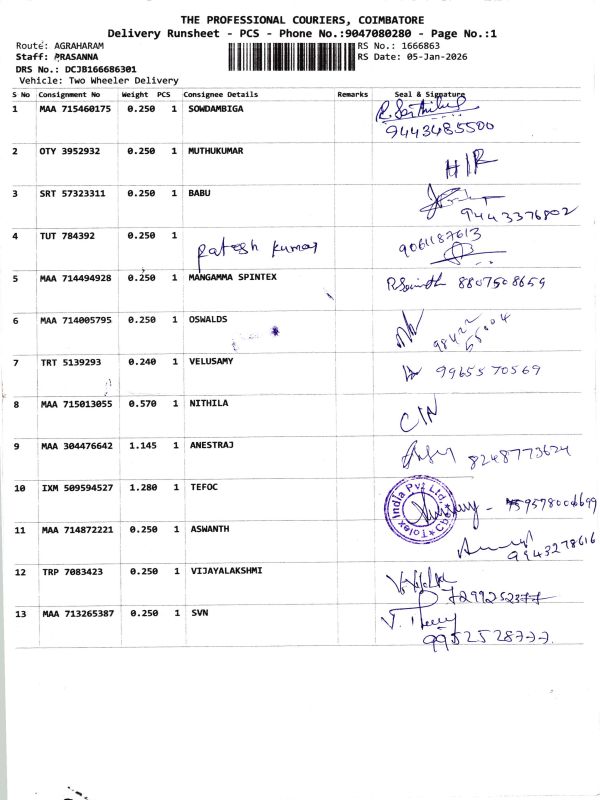 THE PROFESSIONAL COURIERS, COIMBATORE
Delivery Runsheet - PCS - Phone No.:9047080280 - Page No.:1
Route: AGRAHARAM RS No.: 1666863
Staff: PRASANNA RS Date: 05-Jan-2026
DRS No.: DCJB166686301
Vehicle: Two Wheeler Delivery
S No Consignment No Weight PCS Consignee Details Remarks Seal & Signature
1 MAA 715460175 0.250 1 SOWDAMBIGA
9443485500
2 OTY 3952932 0.250 1 MUTHUKUMAR
3 SRT 57323311 0.250 1 BABU
9443376802
4 TUT 784392 0.250 1 Ratesh kumar 9061187613
5 MAA 714494928 0.250 1 MANGAMMA SPINTEX 8807508659
6 MAA 714005795 0.250 1 OSWALDS
7 TRT 5139293 0.240 1 VELUSAMY 9965570569
8 MAA 715013055 0.570 1 NITHILA
9 MAA 304476642 1.145 1 ANESTRAJ 8248773624
10 IXM 509594527 1.280 1 TEFOC
11 MAA 714872221 0.250 1 ASWANTH
9943278616
12 TRP 7083423 0.250 1 VIJAYALAKSHMI
13 MAA 713265387 0.250 1 SVN